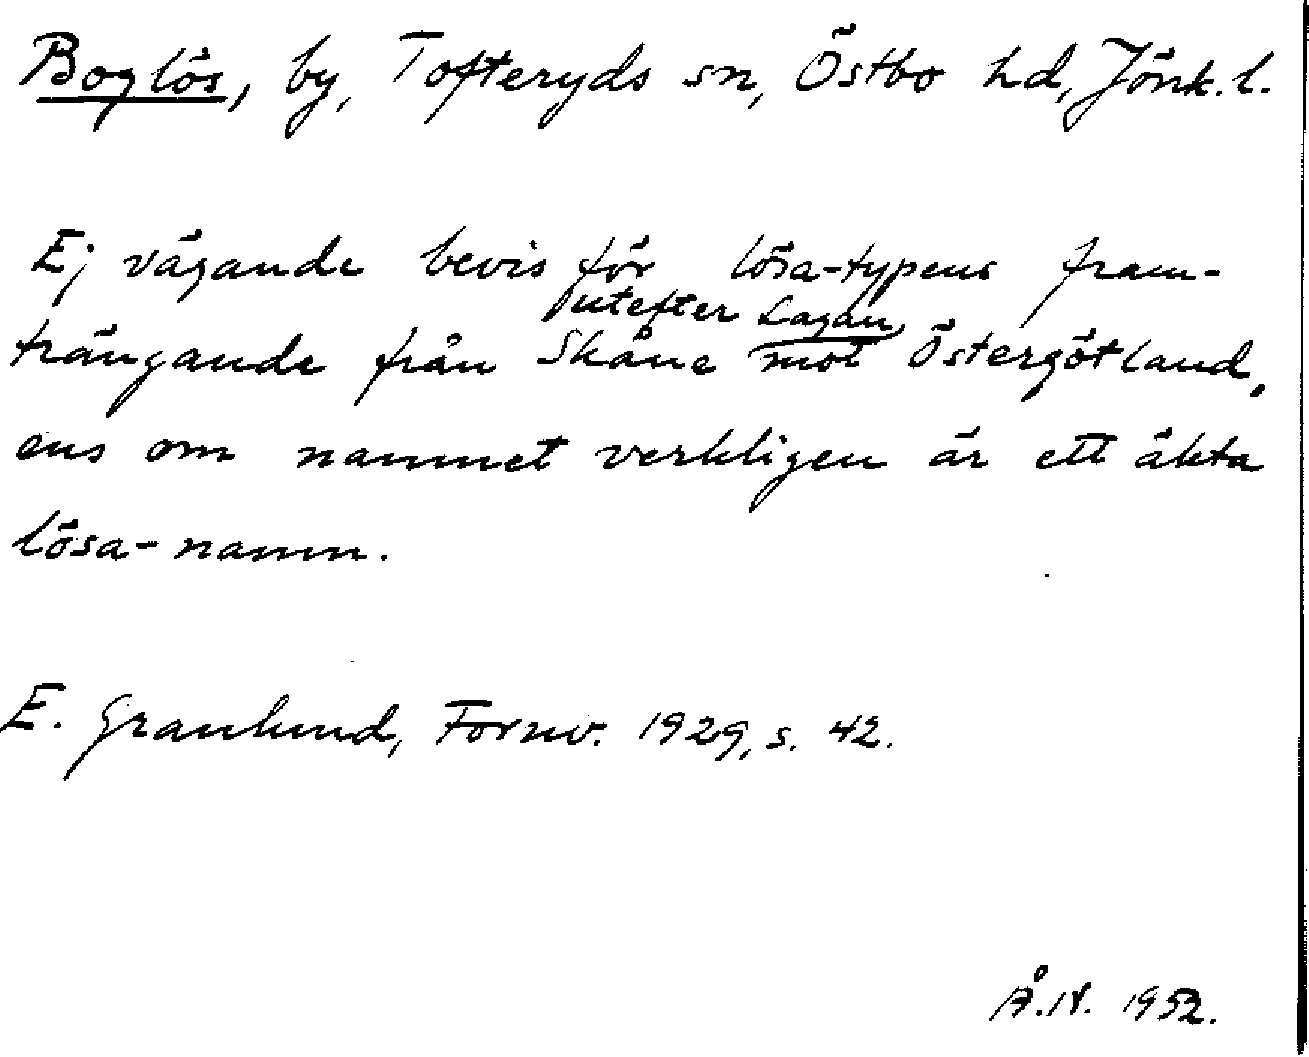 Boglös, by, Tofteryds sn, Östbo hd, Jönk. l.
Ej vägande bevis för lösa-typens fram-
utefter Lagan
trängande från Skåne mot Östergötland,
ens om namnet verkligen är ett äkta
lösa-namn.
E. Granlund, Fornv. 1929, s. 42.
1952.